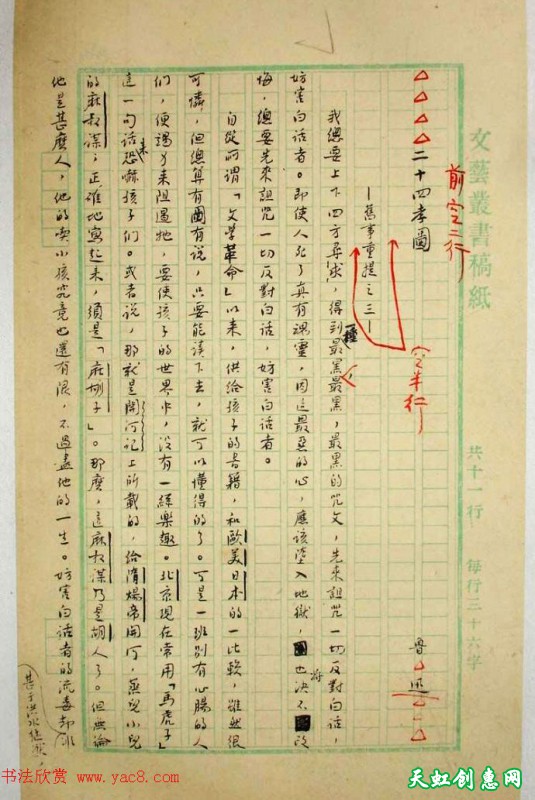 文藝叢書稿紙
共十一行 每行二十六字
前空二行
△△△△二十四孝圖
魯△迅△△△
—舊事重提之三—
空半行
我總要上下四方尋求,得到一種最黑,最黑,最黑的咒文,先來詛咒一切反對白話,
妨害白話者。即使人死了真有魂靈,因這最惡的心,應該墮入地獄,也將決不改
悔,總要先來詛咒一切反對白話,妨害白話者。
自從所謂「文學革命」以來,供給孩子的書籍,和歐美日本的一比較,雖然很
可憐,但總算有圖有說,只要能讀下去,就可以懂得的了。可是一班別有心腸的人
們,便竭力來阻遏牠,要使孩子的世界中,沒有一絲樂趣。北京現在常用「馬虎子」
這一句話來恐嚇孩子們。或者說,那就是開河記上所載的,給隋煬帝開河,蒸死小兒
的麻叔謀;正確地寫起來,須是「麻胡子」。那麼,這麻叔謀乃是胡人了。但無論
他是甚麼人,他的喫小孩究竟也還有限,不過盡他的一生。妨害白話者的流毒卻
甚于洪水猛獸,
书法欣赏 www.yac8.com
天虹创惠网